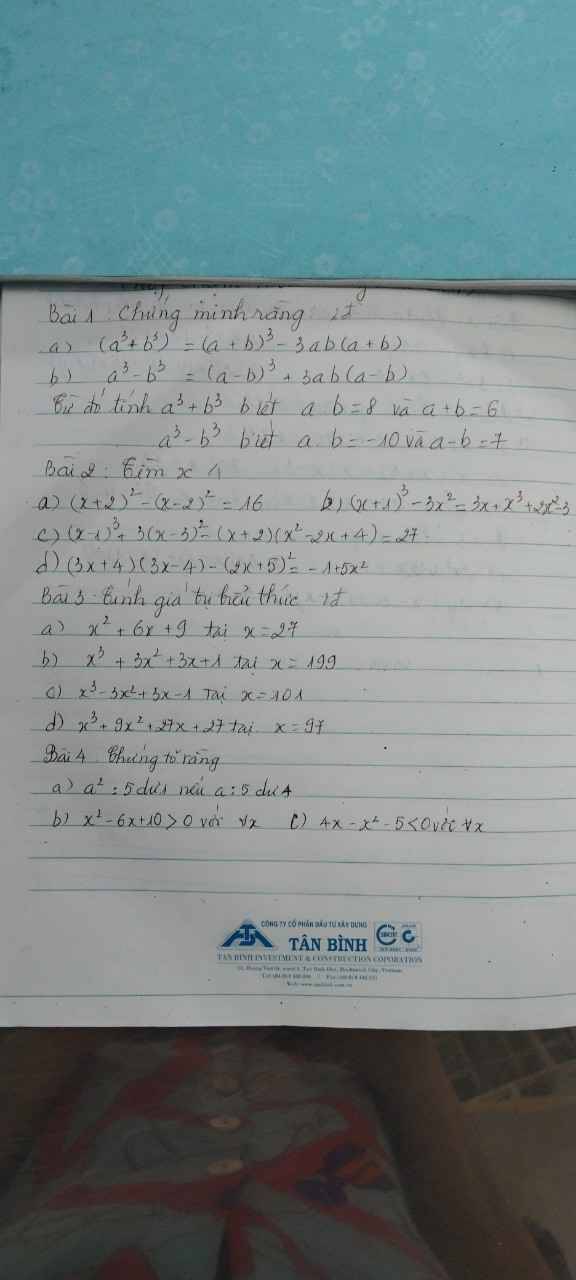 Bài 1: Chứng minh rằng 2đ
a) (a³+b³) = (a + b)³ - 3ab(a + b)
b) a³-b³ = (a-b)³ + 3ab(a-b)
Từ đó tính a³ + b³ biết a.b=8 và a+b=6
a³-b³ biết a.b=-10 và a-b=7
Bài 2: Tìm x 4
a) (x+2)² - (x-2)² = 16 b) (x+1)³ - 3x² = 3x + x³ + 2x² - 3
c) (x-1)³ + 3(x-3)² - (x+2)(x²-2x+4) = 27
d) (3x+4)(3x-4) - (2x+5)² = -1+5x²
Bài 3: Tính giá trị biểu thức 2đ
a) x² + 6x + 9 tại x=27
b) x³ + 3x² + 3x+1 tại x = 199
c) x³-3x²+3x-1 Tại x=101
d) x³ + 9x² + 27x + 27 tại x = 97
Bài 4 Chứng tỏ rằng
a) a² : 5 dư 1 nếu a : 5 dư 4
b) x² - 6x+10 > 0 với ∀x c) 4x - x² - 5 < 0 với ∀x
CÔNG TY CỔ PHẦN ĐẦU TƯ XÂY DỰNG
TÂN BÌNH
TAN BINH INVESTMENT & CONSTRUCTION COPORATION